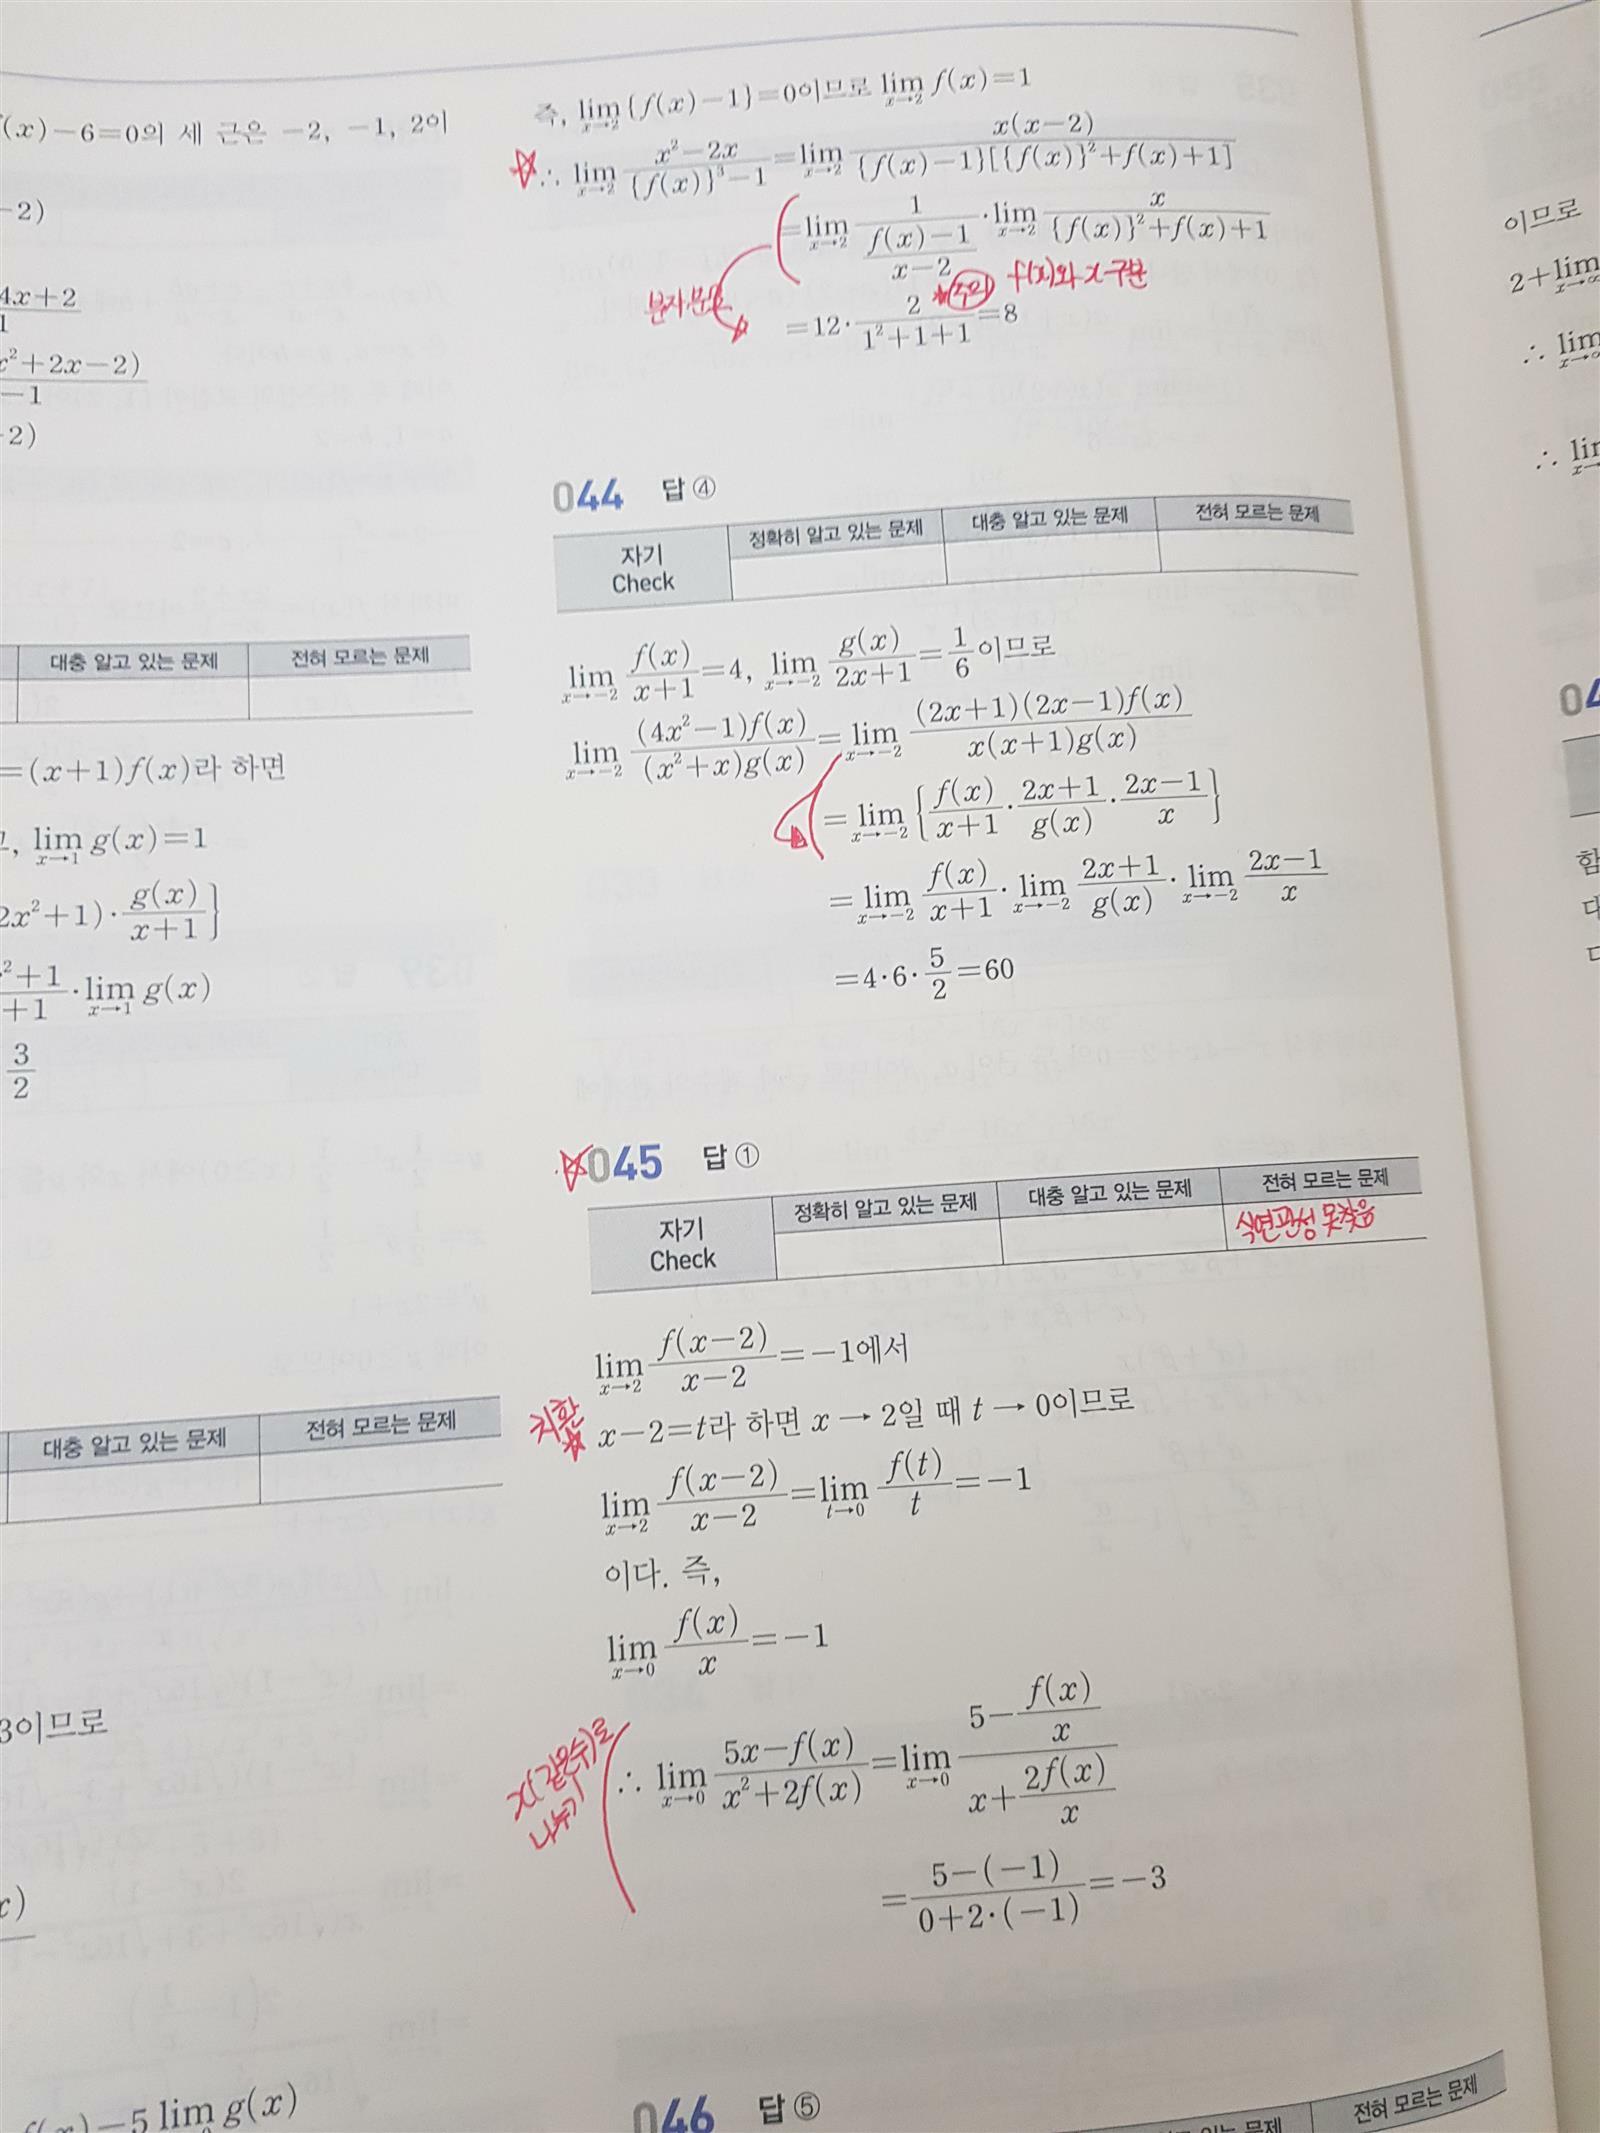 f(x)−6=0의 세 근은 −2, −1, 2이
−2)
4x+2
1
x²+2x−2)
−1
−2)
대충 알고 있는 문제 전혀 모르는 문제
=(x+1)f(x)라 하면
, lim_{x→1} g(x)=1
2x²+1)·g(x)/(x+1)}
²+1/+1·lim_{x→1} g(x)
3/2
대충 알고 있는 문제 전혀 모르는 문제
3이므로
x)
f(x)−5 lim g(x)
즉, lim_{x→2} {f(x)−1}=0이므로 lim_{x→2} f(x)=1
☆∴ lim_{x→2} (x²−2x)/({f(x)}³−1)=lim_{x→2} x(x−2)/({f(x)−1}[{f(x)}²+f(x)+1])
=lim_{x→2} 1/((f(x)−1)/(x−2))·lim_{x→2} x/({f(x)}²+f(x)+1)
주의 f(x)와 x 구분
=12·2/(1²+1+1)=8
044 답 ④
자기 Check 정확히 알고 있는 문제 대충 알고 있는 문제 전혀 모르는 문제
lim_{x→−2} f(x)/(x+1)=4, lim_{x→−2} g(x)/(2x+1)=1/6이므로
lim_{x→−2} (4x²−1)f(x)/((x²+x)g(x))=lim_{x→−2} (2x+1)(2x−1)f(x)/(x(x+1)g(x))
=lim_{x→−2} {f(x)/(x+1)·(2x+1)/g(x)·(2x−1)/x}
=lim_{x→−2} f(x)/(x+1)·lim_{x→−2} (2x+1)/g(x)·lim_{x→−2} (2x−1)/x
=4·6·5/2=60
☆045 답 ①
자기 Check 정확히 알고 있는 문제 대충 알고 있는 문제 전혀 모르는 문제
식연관성 못찾음
lim_{x→2} f(x−2)/(x−2)=−1에서
치환
x−2=t라 하면 x → 2일 때 t → 0이므로
lim_{x→2} f(x−2)/(x−2)=lim_{t→0} f(t)/t=−1
이다. 즉,
lim_{x→0} f(x)/x=−1
x(같은수)로
나누기
∴ lim_{x→0} (5x−f(x))/(x²+2f(x))=lim_{x→0} (5−f(x)/x)/(x+2f(x)/x)
=(5−(−1))/(0+2·(−1))=−3
046 답 ⑤
있는 문제 전혀 모르는 문제
이므로
2+lim
∴ lim
∴ lim